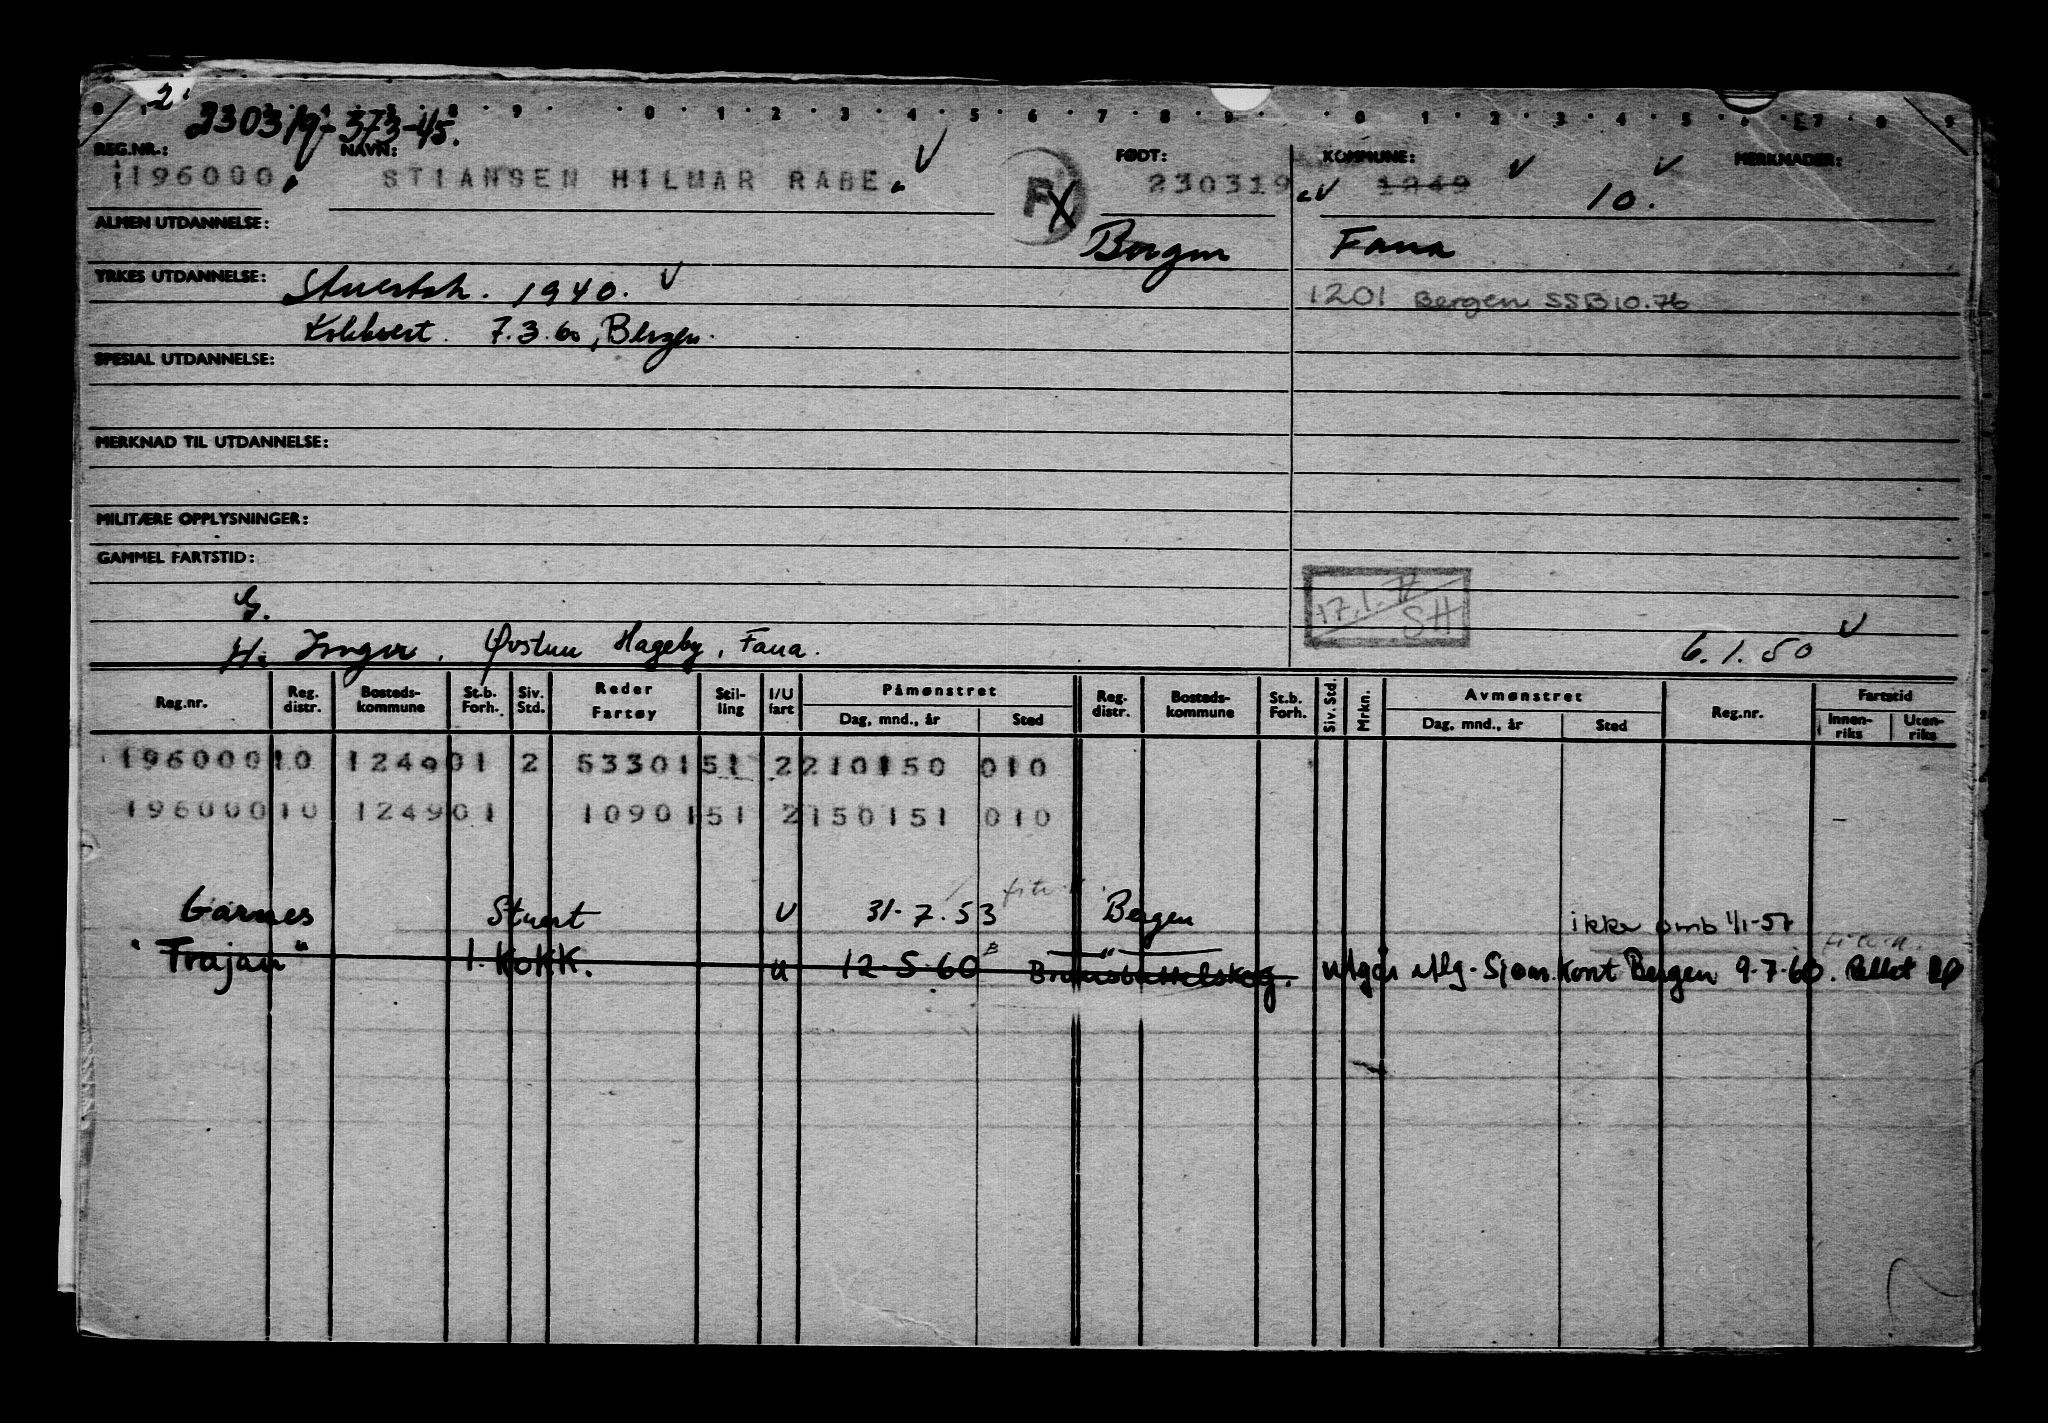 2
230319-373-45.
REG.NR.: NAVN: FØDT: KOMMUNE: MERKNADER:
1196000 STIANSEN HILMAR RABE. 230319 1249 10.
ALMEN UTDANNELSE: Bergen Fana
YRKES UTDANNELSE: Stuertsk. 1940. 1201 Bergen SSB10.76
Kokksert. 7.3.60, Bergen.
SPESIAL UTDANNELSE:
MERKNAD TIL UTDANNELSE:
MILITÆRE OPPLYSNINGER:
GAMMEL FARTSTID:
G. 17.1. SH
H: Inger, Øvstun Hageby, Fana. 6.1.50
Reg.nr. Reg. distr. Bosteds- kommune St.b. Forh. Siv. Std. Reder Fartøy Stil- ling I/U fart Påmønstret Dag, mnd., år Sted Reg. distr. Bosteds- kommune St.b. Forh. Siv. Std. Mrkn. Avmønstret Dag, mnd., år Sted Reg.nr. Fartstid Innen- riks Uten- riks
196000 10 1249 01 2 5330151 2 210150 010
196000 10 1249 01 1090151 2 150151 010
Garnes Stuert U 31-7.53 Bergen ikke omb 1/1-57
"Trajan" 1. KOKK. u 12-5-60 utgår Sjøm.Kont Bergen 9-7-60.